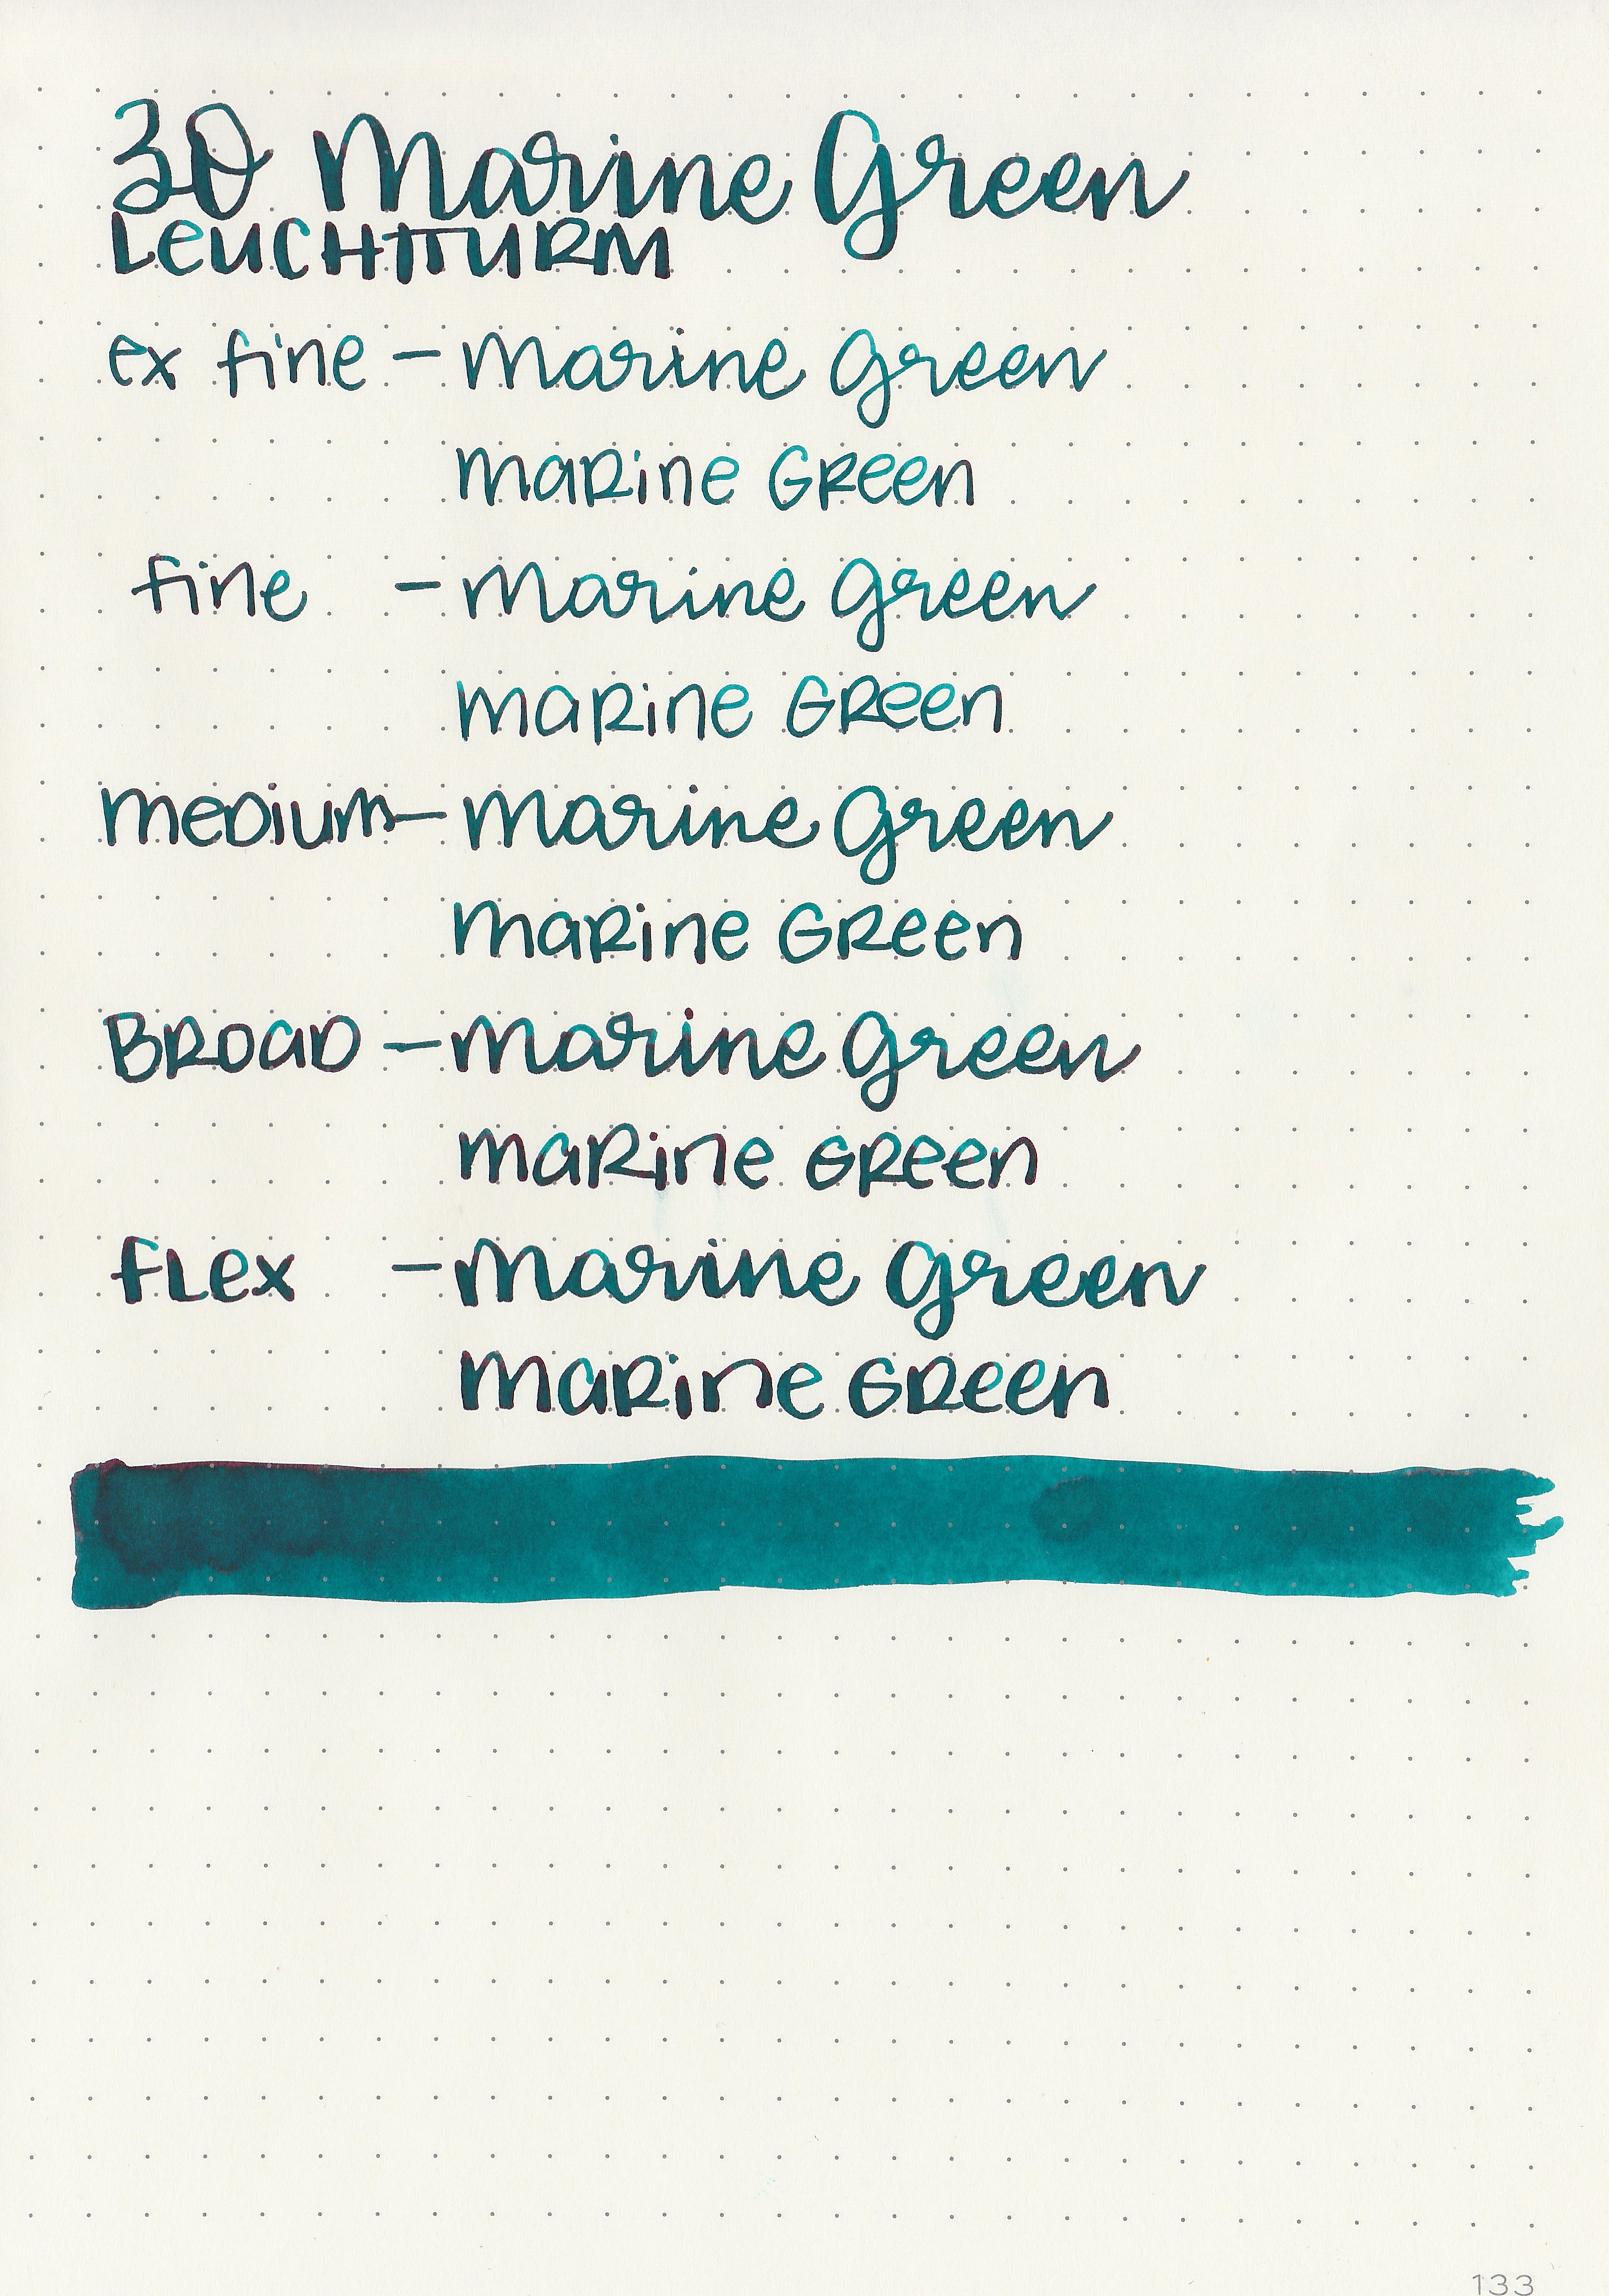 30 Marine Green
LEUCHTTURM
ex fine - Marine Green
Marine Green
fine - Marine Green
Marine Green
Medium - Marine Green
Marine Green
Broad - Marine Green
Marine Green
Flex - Marine Green
Marine Green
133